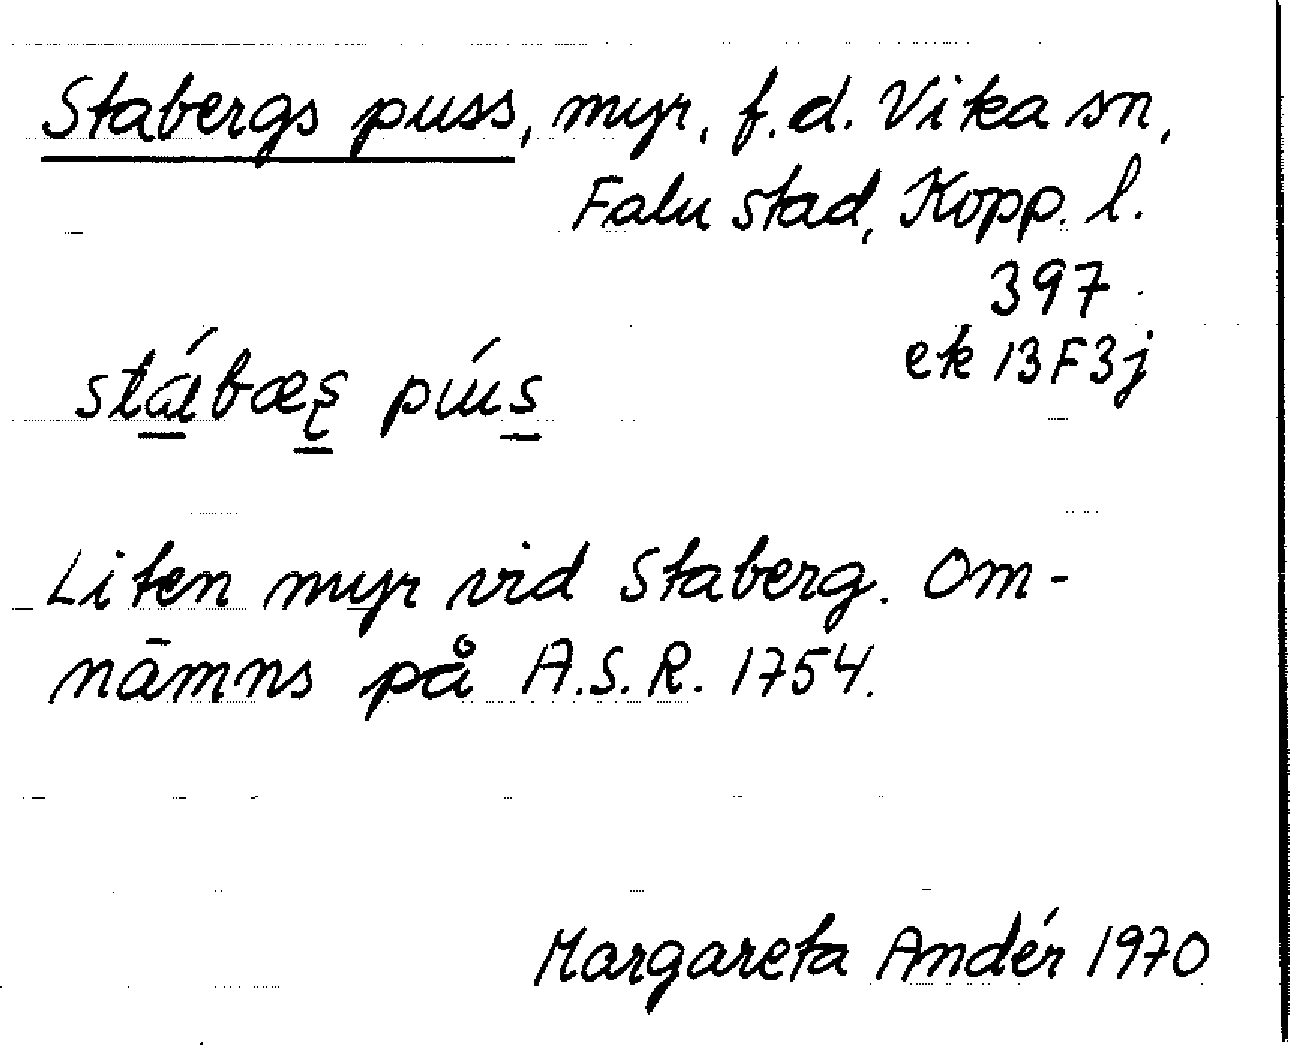 Stabergs puss, myr, f.d. Vika sn,
Falu stad, Kopp. l.
397
ek 13F3j
Liten myr vid Staberg. Om-
nämns på A.S.R. 1754.
Margareta Andér 1970